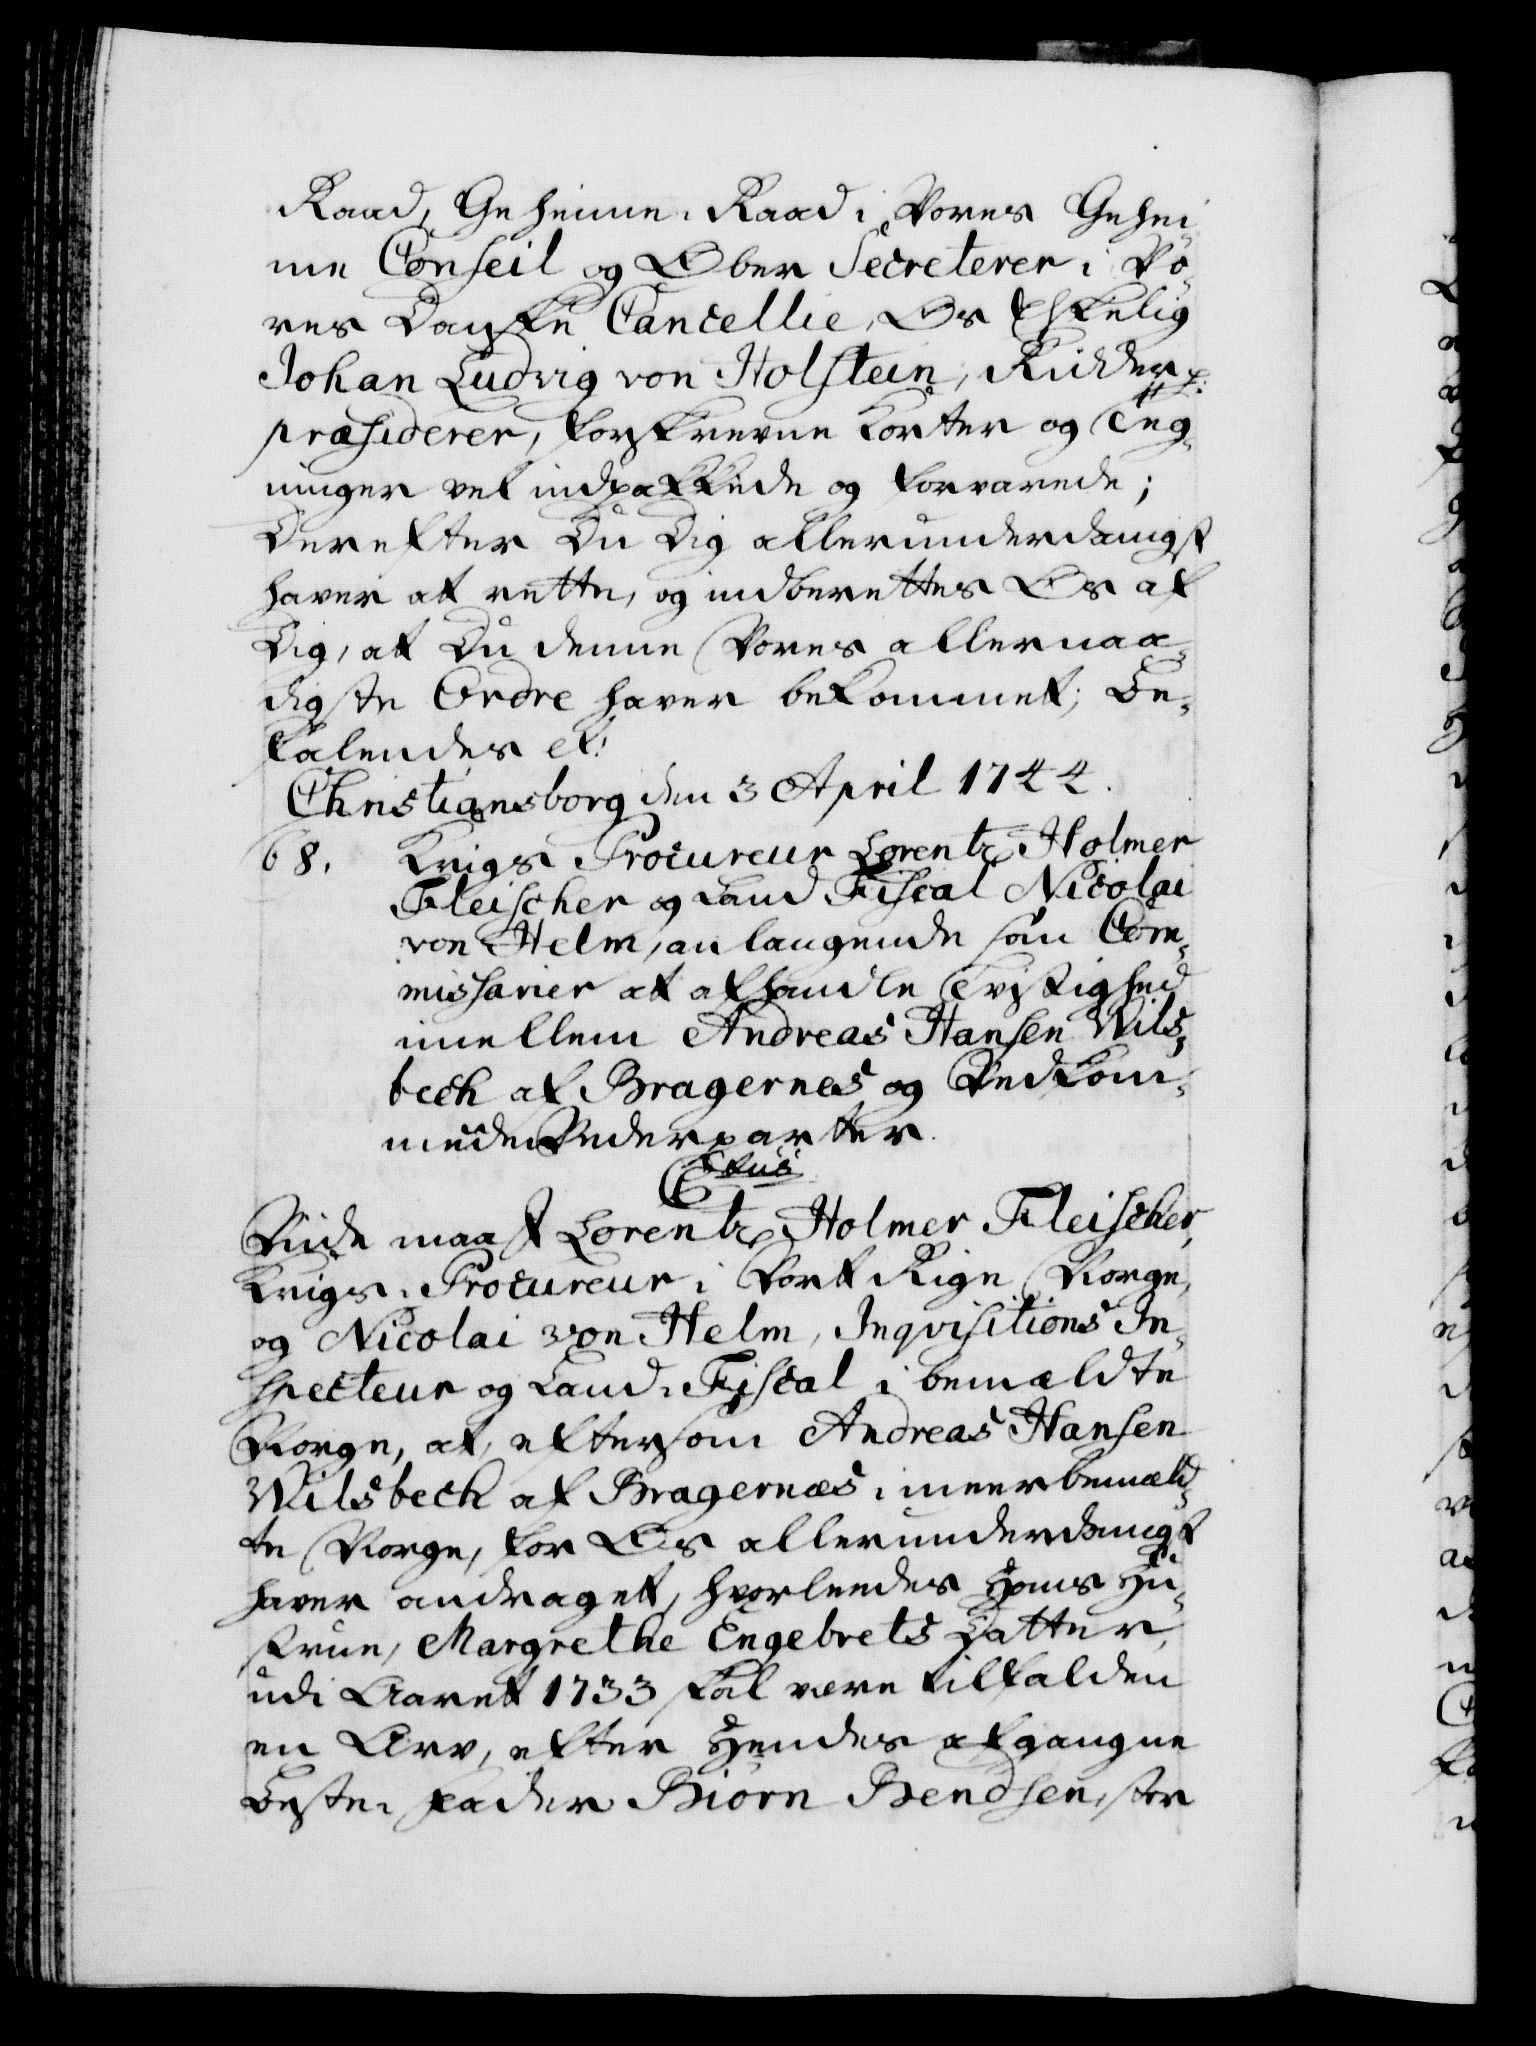 Raad, Geheime-Raad i Vores Gehei-
me Conseil og Ober Secreterer i Vo-
res Danske Cancellie, Os Elskelig
Johan Ludvig von Holstein, Ridder p:
præsiderer, forskrevne Korter og Teg-
ninger vel indpakkede og forvarede;
Derefter Du Dig allerunderdanigst
haver at rette, og indberettes Os af
Dig, at Du denne Vores allernaa-
digste Ordre haver bekommet; Be-
falendes et:
Christiansborg den 3 April 1744.
68. Krigs Procureur Lorentz Holmer
Fleischer og Land Fiscal Nicolai
von Helm, anlangende som Com-
missarier at afhandle Tvistighed
imellem Andreas Hansen Wils-
bech af Bragernes og Vedkom-
mende Vederparter.
C 6tus
Viide maa I Lorentz Holmer Fleischer,
Krigs-Procureur i Vort Rige Norge,
og Nicolai von Helm, Inqvisitions In-
specteur og Land-Fiscal i bemældte
Norge, at, eftersom Andreas Hansen
Wilsbech af Bragernæs i meerbemæld-
te Norge, for Os allerunderdanigst
haver andraget, hvorledes Hans Hu-
strue, Margrethe Engebrets Datter,
udi Aaret 1733 skal være tilfalden
en Arv, efter Hendes afgangne
Beste-Fader Biørn Bendsen, stor